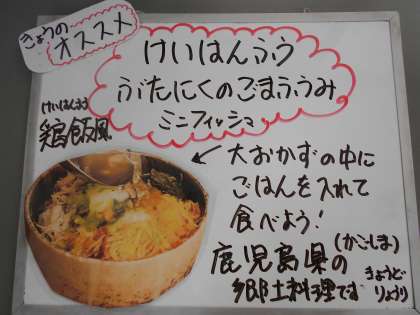 きょうの
オススメ
けいはんふう
ぶたにくのごまふうみ
ミニフィッシュ
けいはんふう
鶏飯風
← 大おかずの中に
ごはんを入れて
食べよう!
鹿児島県の(かごしま)
郷土料理です きょうど
りょうり